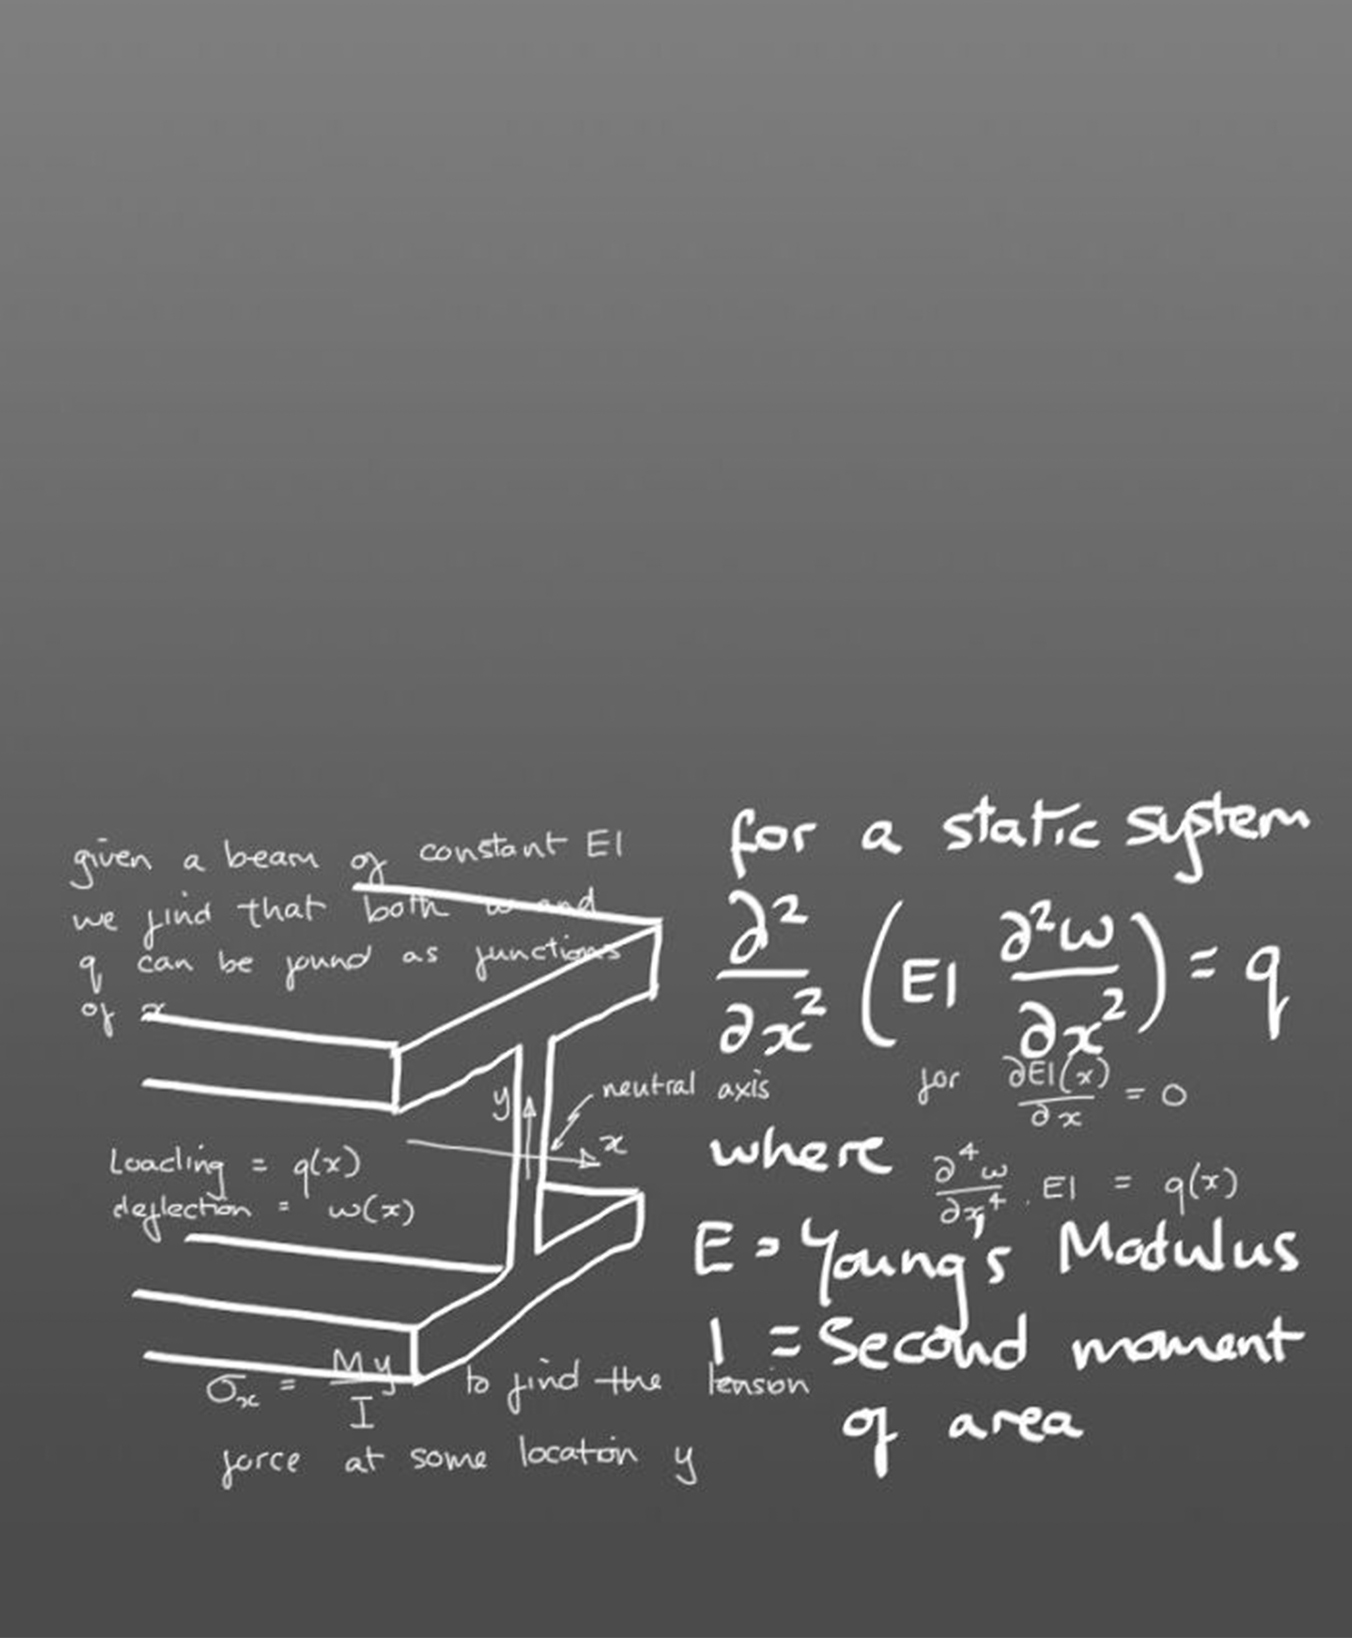 given a beam of constant EI
we find that both w and
q can be found as functions
of x
Loading = q(x)
deflection = w(x)
y
x
neutral axis
σₓ = My/I to find the tension
force at some location y
for a static system
∂²/∂x² (EI ∂²w/∂x²) = q
for ∂EI(x)/∂x = 0
where ∂⁴w/∂x⁴ . EI = q(x)
E = Young's Modulus
I = Second moment
of area